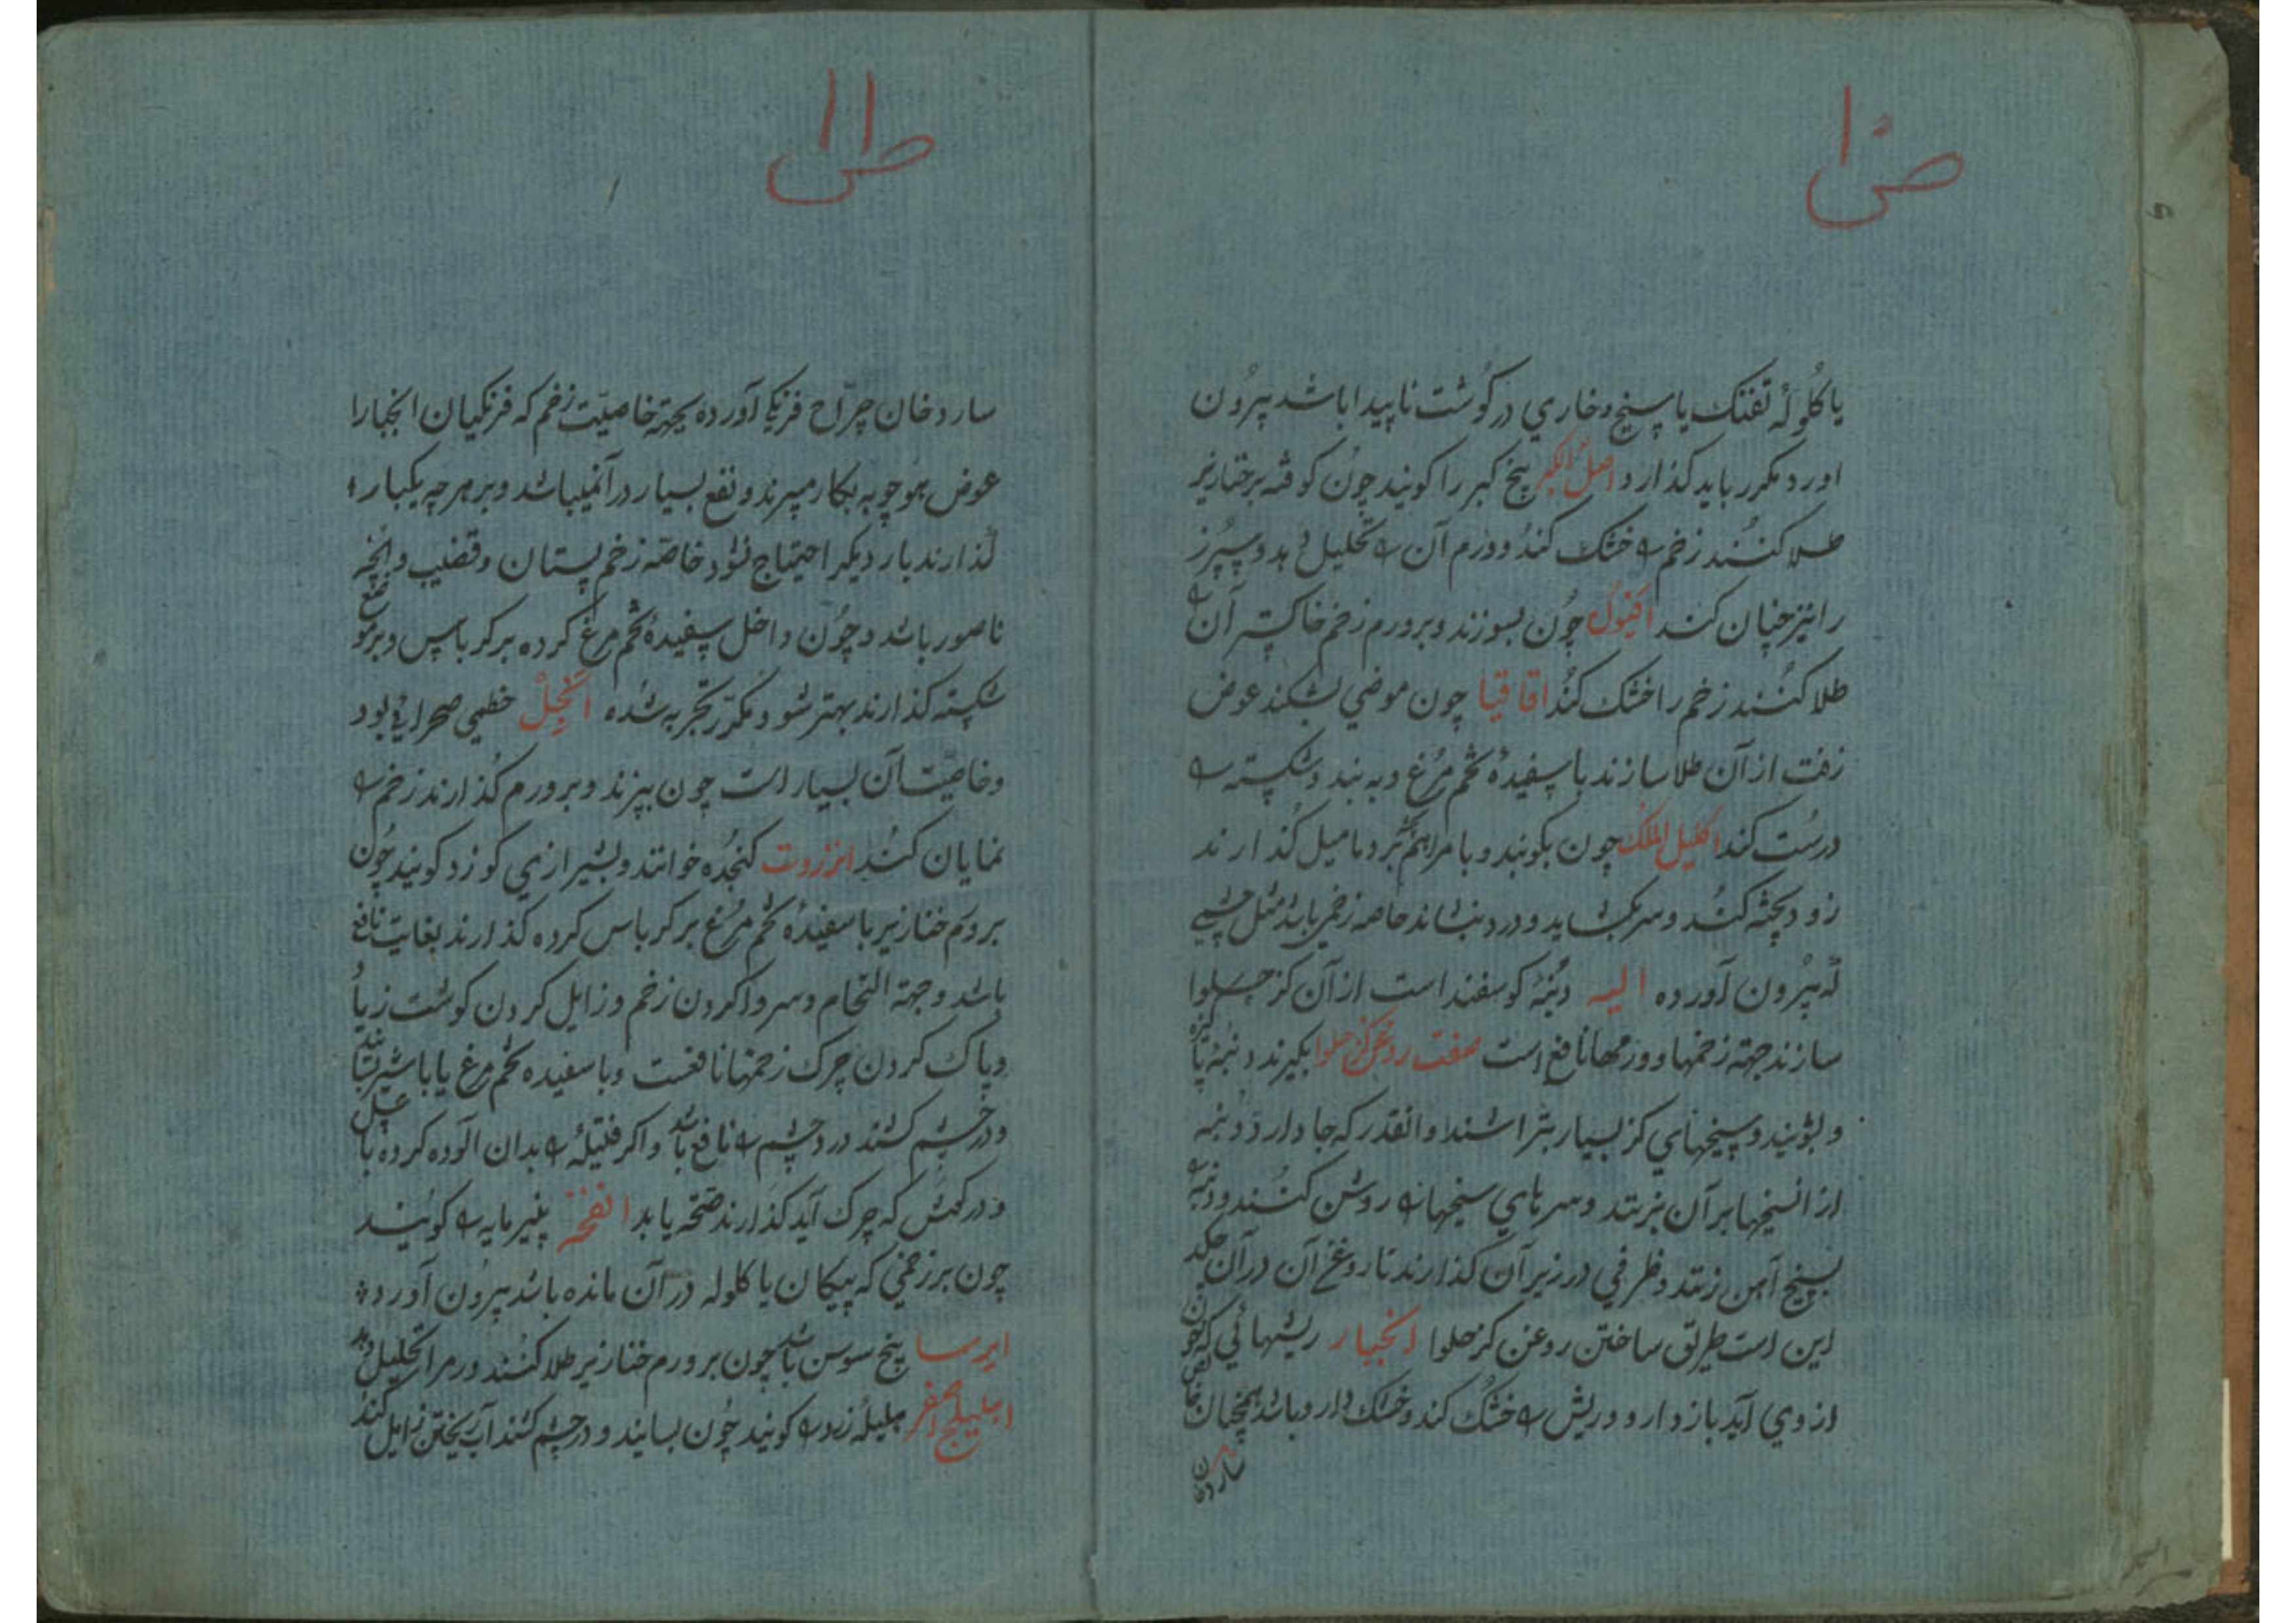 ص ١٠
یا کلولهٔ تفنک یا سیخ و خاری در کوشت ناپیدا باشد بیرون
اورد مکرر باید کذارد اصل الکبر بیخ کبر را کویند چون کوفته بر خنازیر
طلا کنند زخم را خشک کند و ورم آن را تحلیل دهد و سپرز
را نیز چنان کند چون بسوزند و بر ورم زخم خاکستر آن را
طلا کنند زخم را خشک کند اقاقیا چون موضی بشکند عوض
زفت از آن طلا سازند با سفیدهٔ تخم مرغ و به بند و شکسته را
درست کند اکلیل الملک چون بکوبند و با مراهم بر دمامیل کذارند
زود پخته کند و سر بکشاید و درد بنشاند خاصه زخمی باشد مثل
بیرون آورده الیه دنبهٔ کوسفند است از آن کز حلوا
سازند جهته زخمها و ورمها نافع است صفت روغن کز حلوا بکیرند دنبهٔ تازه
و بشویند و سیخهای کز بسیار بتراشند و انقدر که جا دارد دنبه
از انسیخها بر آن بزنند و سرهای سیخها را روشن کنند و دنبه را
بسیخ آهن زنند و ظرفی در زیر آن کذارند تا روغن آن در آن چکد
این است طریق ساختن روغن کز حلوا انجبار ریشهائی که خون
از وی آید باز دارد و ریش را خشک کند و خشک دارو باشد همچنان
سارد خان
ص ١١
سارد خان جراح فرنکی آورده بجهته خاصیت زخم که فرنکیان انجبار را
عوض هوچوبه بکار میبرند و نفع بسیار در آنمیباشد و بر هر چه یکبار
کذارند بار دیکر احتیاج نشود خاصه زخم پستان و قضیب و آنچه
ناصور باشد و چون داخل سفیدهٔ تخم مرغ کرده بر کرباس و بر موضع
شکسته کذارند بهتر شود مکرر تجربه شده خطمی صحرائی بود
و خاصیت آن بسیار است چون بپزند و بر ورم کذارند زخم را
نمایان کند انزروت کنجده خوانند و بشیرازی کوزد کویند چون
بر ورم خنازیر با سفیدهٔ تخم مرغ بر کرباس کرده کذارند بغایت نافع
باشد و جهته التحام و سر وا کردن زخم و زایل کردن کوشت زیاد
و پاک کردن چرک زخمها نافعست و با سفیده تخم مرغ یا با شیر بسایند
و در چشم کشند درد چشم را نافع باشد و اکر فتیلهٔ را بدان الوده کرده با عسل
و در کوش که چرک آید کذارند صحه یابد انفحه پنیرمایه را کویند
چون بر زخمی که پیکان یا کلوله در آن مانده باشد بیرون آورد
ایرسا بیخ سوسن باشد چون بر ورم خنازیر طلا کنند ورم را تحلیل دهد
اهلیلج اصفر هلیلهٔ زرد را کویند چون بسایند و در چشم کشند آب ریختن زایل کند